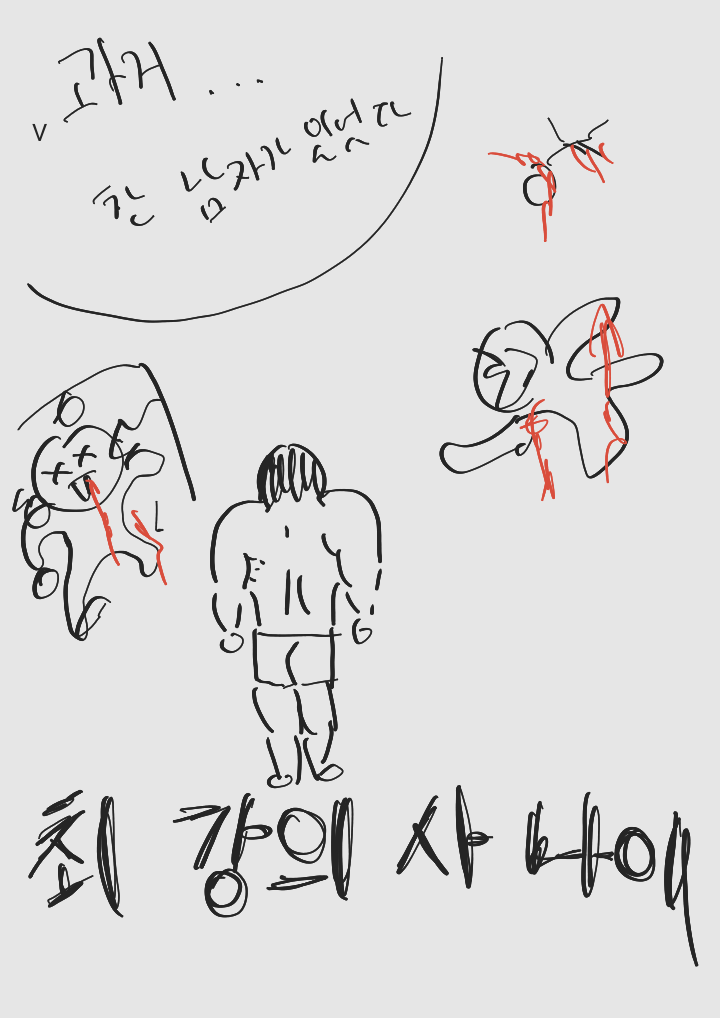 과거...
한 남자가 있었다
최강의 사나이